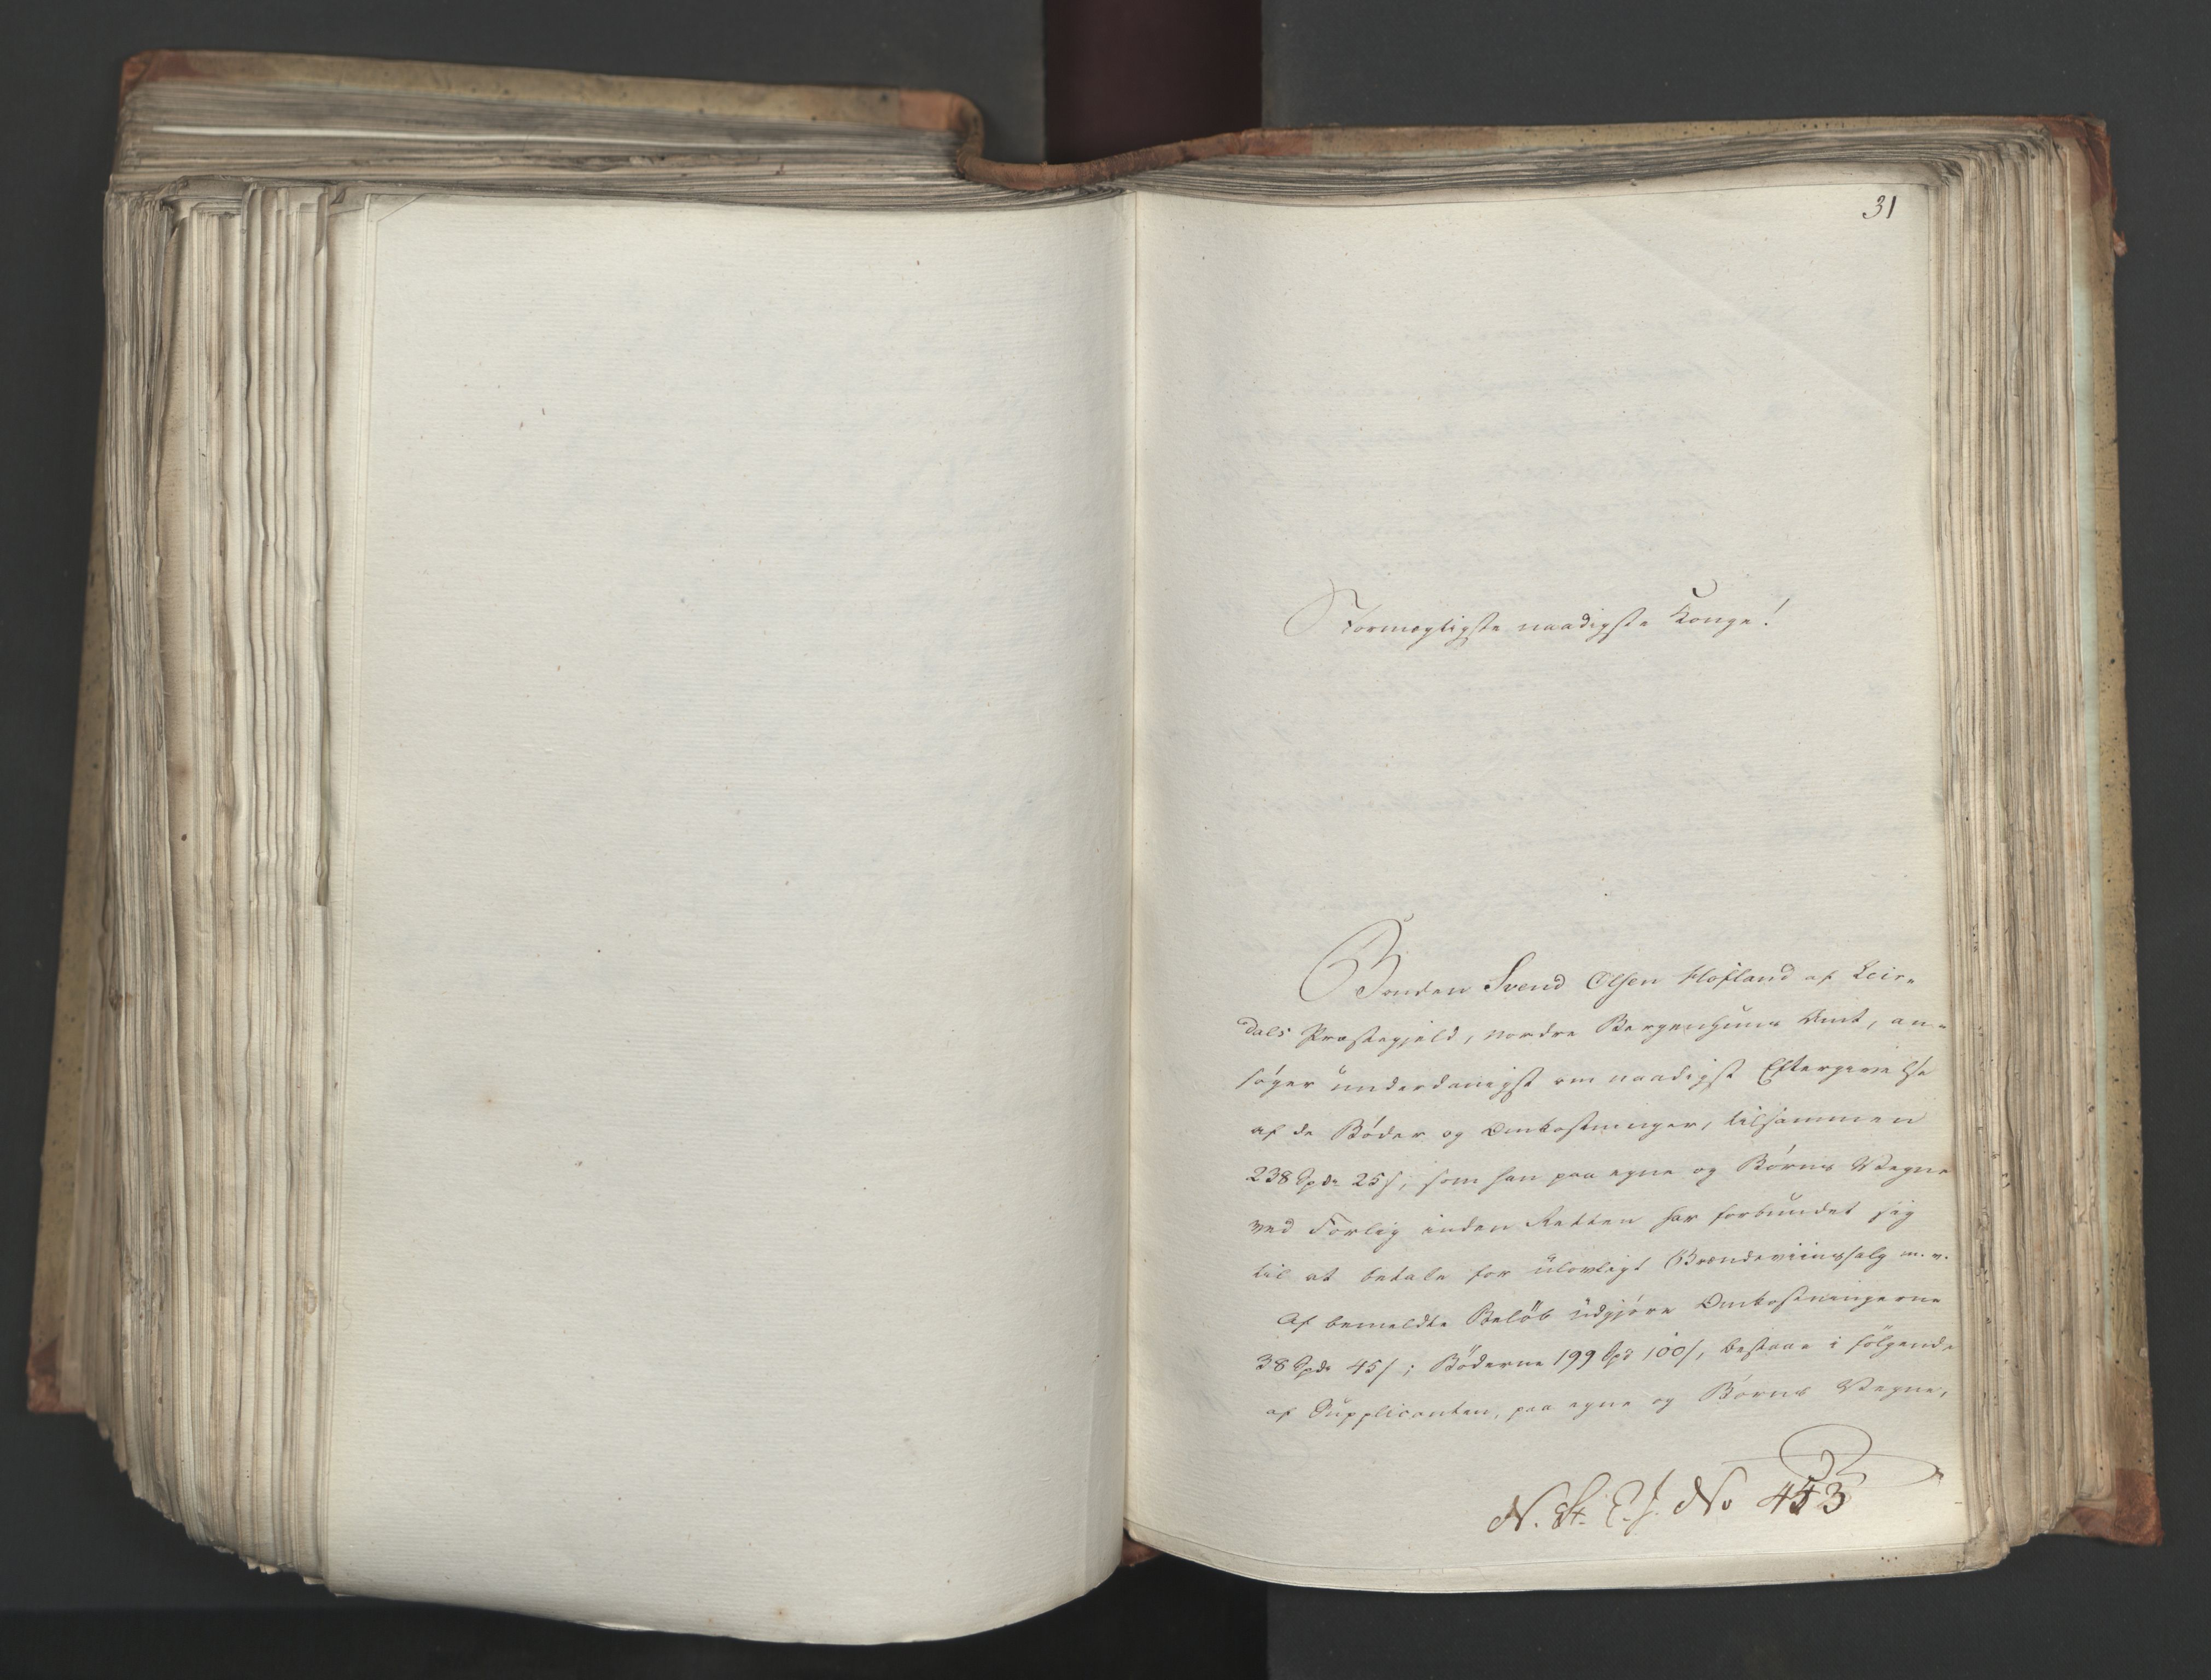 31
Stormægtigste naadigste Konge!
Bonden Svend Olsen Hofland af Leir-
dals Præstegjeld, nordre Bergenhuus Amt, an-
søger underdanigst om naadigst Eftergivelse
af de Bøder og Omkostninger, tilsammen
238 Spdr 25 s; som han paa egne og Børns Vegne
ved Forlig inden Retten har forbundet sig
til at betale for ulovligt Brændeviinssalg m. v.
Af bemeldte Beløb udgjøre Omkostningerne
38 Spdr 45 s; Bøderne 199 Spd 100 s, bestaae i følgende
af Supplicanten, paa egne og Børns Vegne,
N. St. E. J. No 453